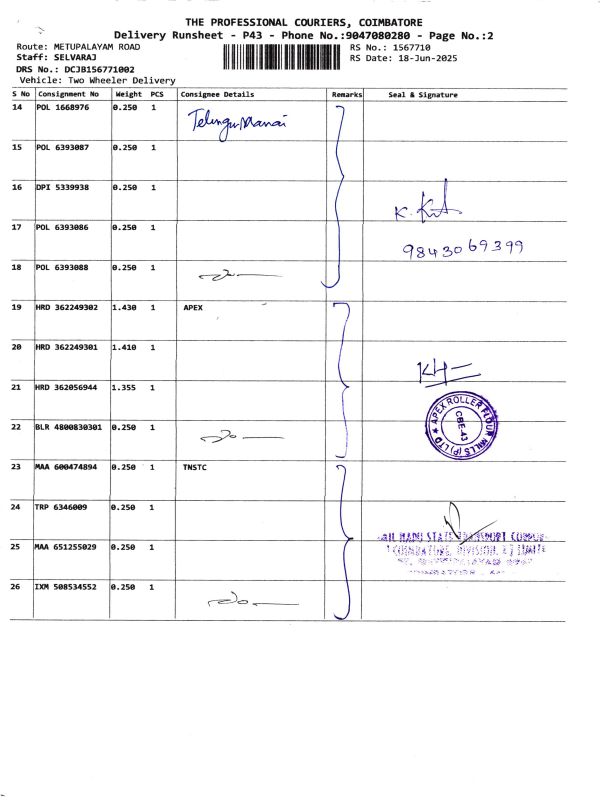 THE PROFESSIONAL COURIERS, COIMBATORE
Delivery Runsheet - P43 - Phone No.:9047080280 - Page No.:2
Route: METUPALAYAM ROAD
RS No.: 1567710
Staff: SELVARAJ
RS Date: 18-Jun-2025
DRS No.: DCJB156771002
Vehicle: Two Wheeler Delivery
S No Consignment No Weight PCS Consignee Details Remarks Seal & Signature
14 POL 1668976 0.250 1
15 POL 6393087 0.250 1
16 DPI 5339938 0.250 1
17 POL 6393086 0.250 1
9843069399
18 POL 6393088 0.250 1
19 HRD 362249302 1.430 1 APEX
20 HRD 362249301 1.410 1
21 HRD 362056944 1.355 1
APEX ROLLER FLOUR MILLS (P) LTD
CBE-43
22 BLR 4800830301 0.250 1
23 MAA 600474894 0.250 1 TNSTC
24 TRP 6346009 0.250 1
25 MAA 651255029 0.250 1
26 IXM 508534552 0.250 1